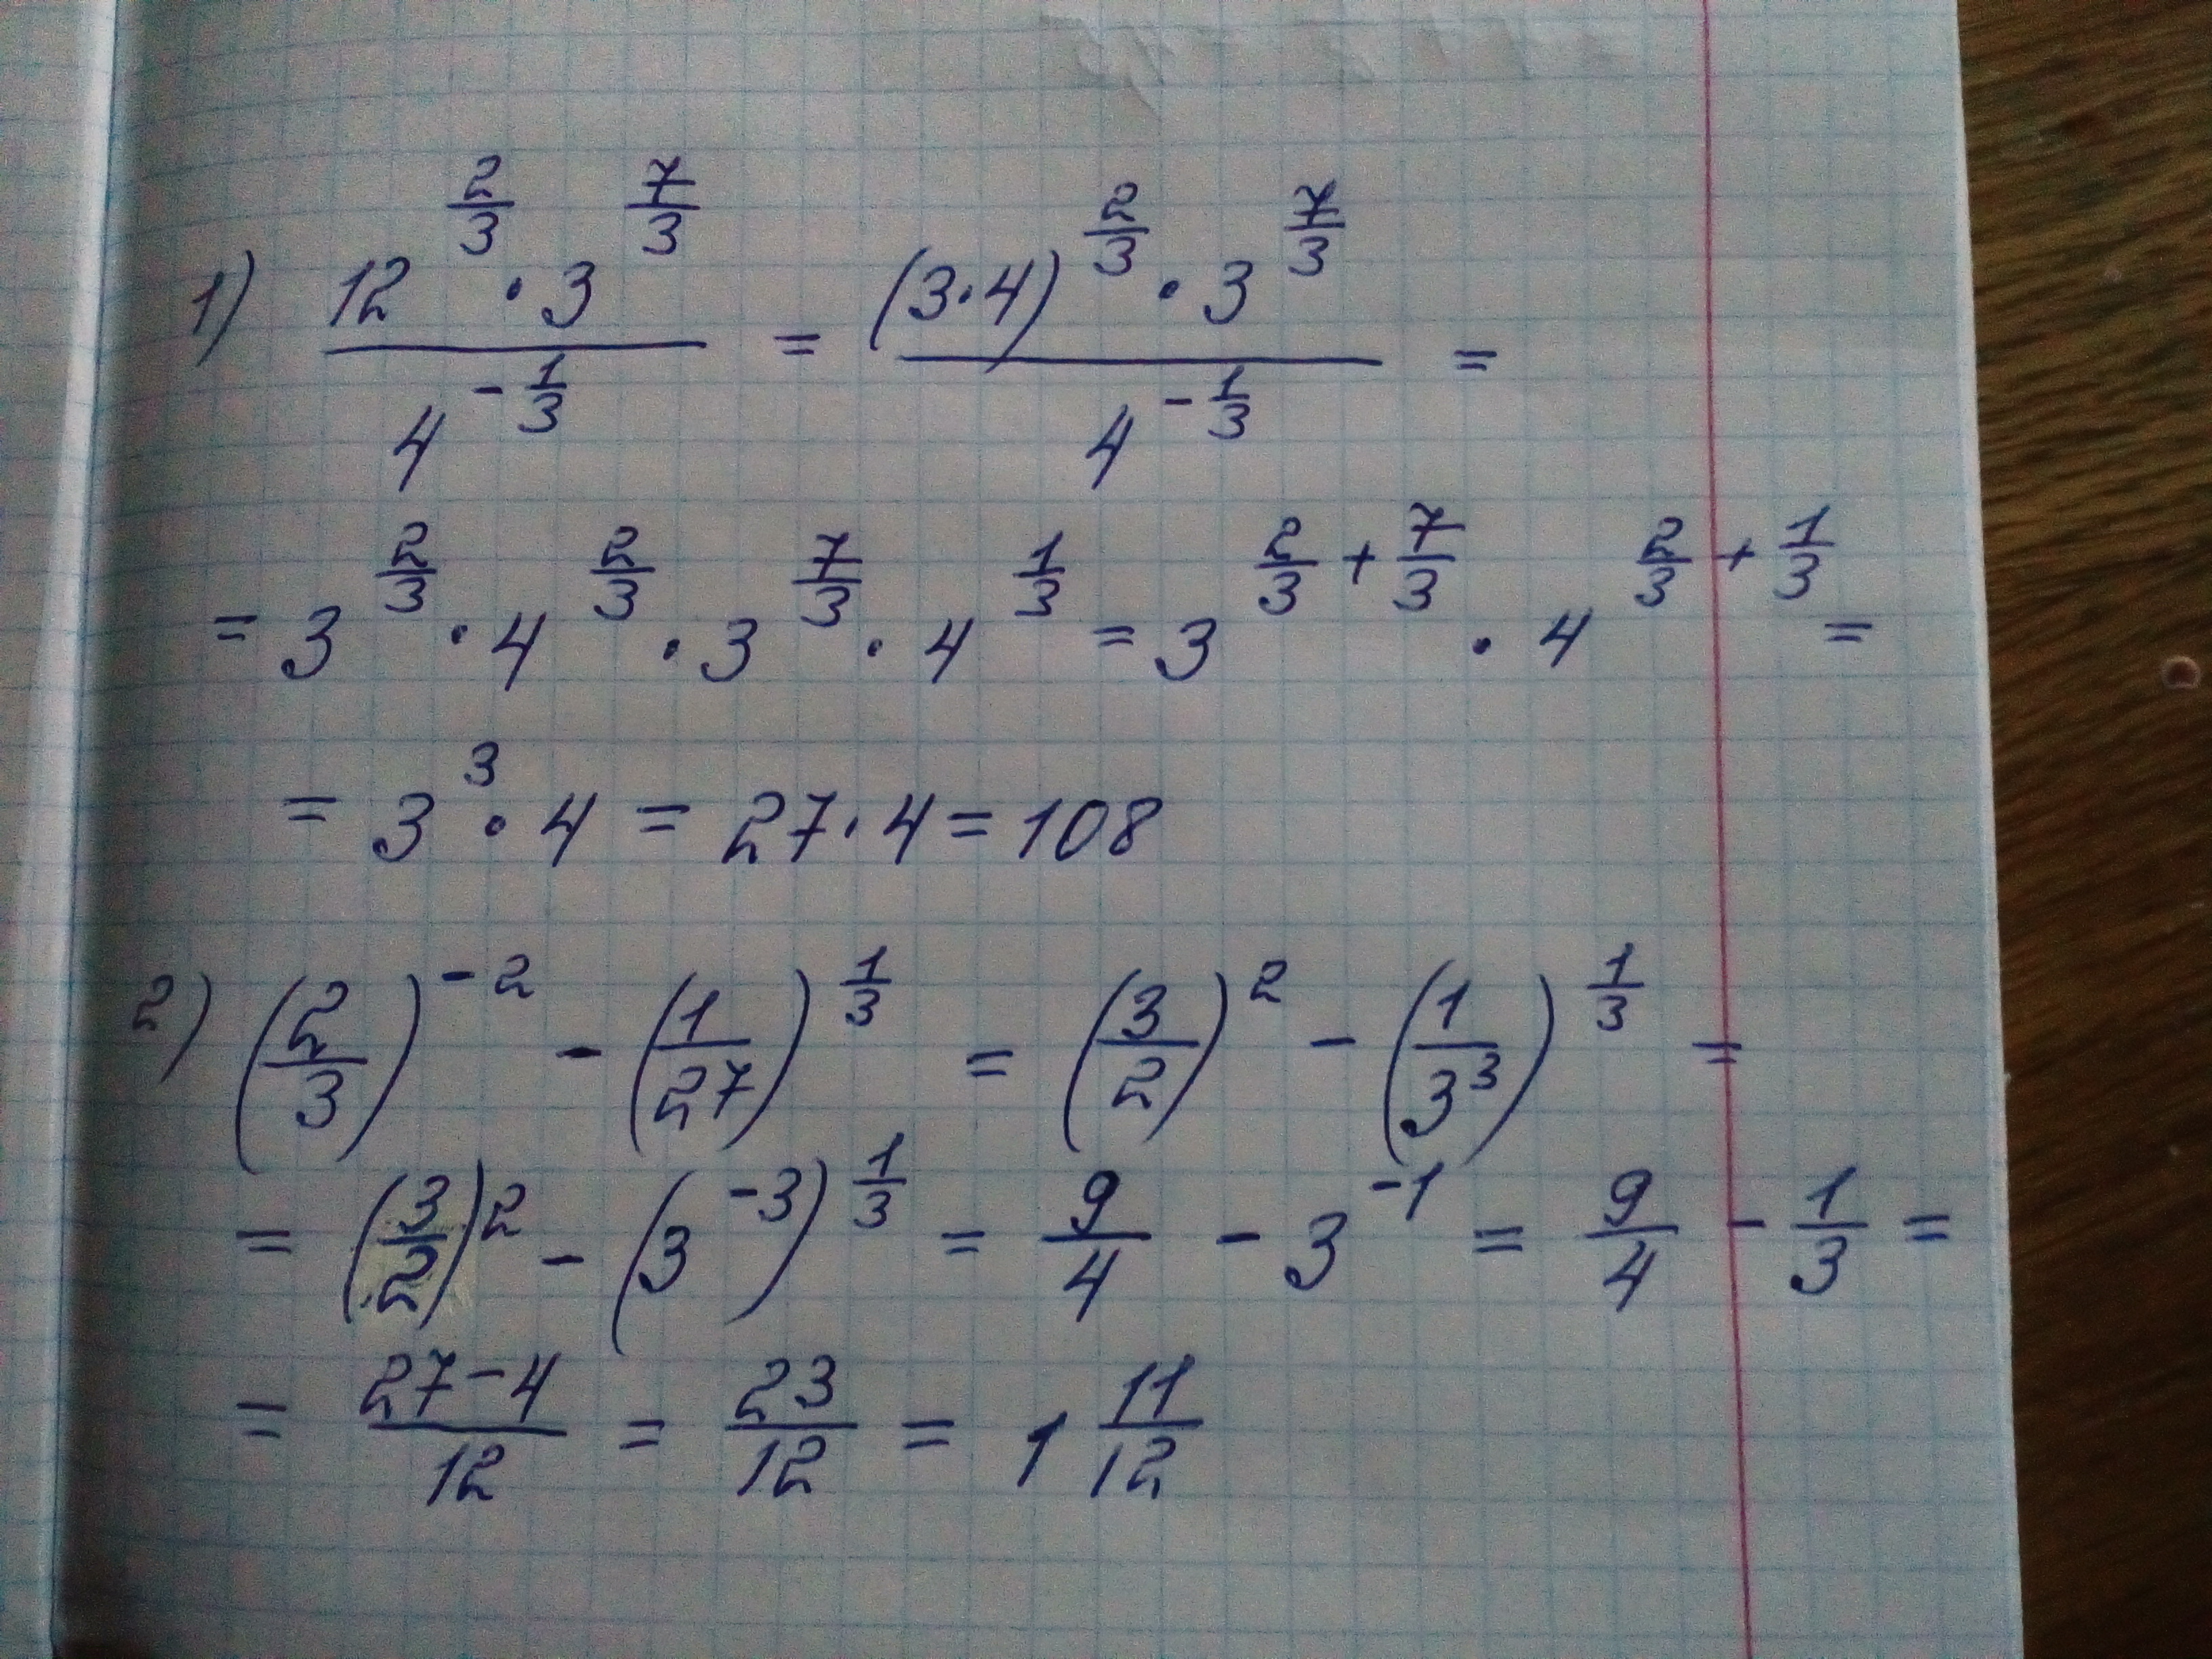 1) \frac{12^{\frac{2}{3}} · 3^{\frac{7}{3}}}{4^{-\frac{1}{3}}} = \frac{(3·4)^{\frac{2}{3}} · 3^{\frac{7}{3}}}{4^{-\frac{1}{3}}} =
= 3^{\frac{2}{3}} · 4^{\frac{2}{3}} · 3^{\frac{7}{3}} · 4^{\frac{1}{3}} = 3^{\frac{2}{3}+\frac{7}{3}} · 4^{\frac{2}{3}+\frac{1}{3}} =
= 3^{3} · 4 = 27·4 = 108
2) (\frac{2}{3})^{-2} - (\frac{1}{27})^{\frac{1}{3}} = (\frac{3}{2})^{2} - (\frac{1}{3^{3}})^{\frac{1}{3}} =
= (\frac{3}{2})^{2} - (3^{-3})^{\frac{1}{3}} = \frac{9}{4} - 3^{-1} = \frac{9}{4} - \frac{1}{3} =
= \frac{27-4}{12} = \frac{23}{12} = 1\frac{11}{12}